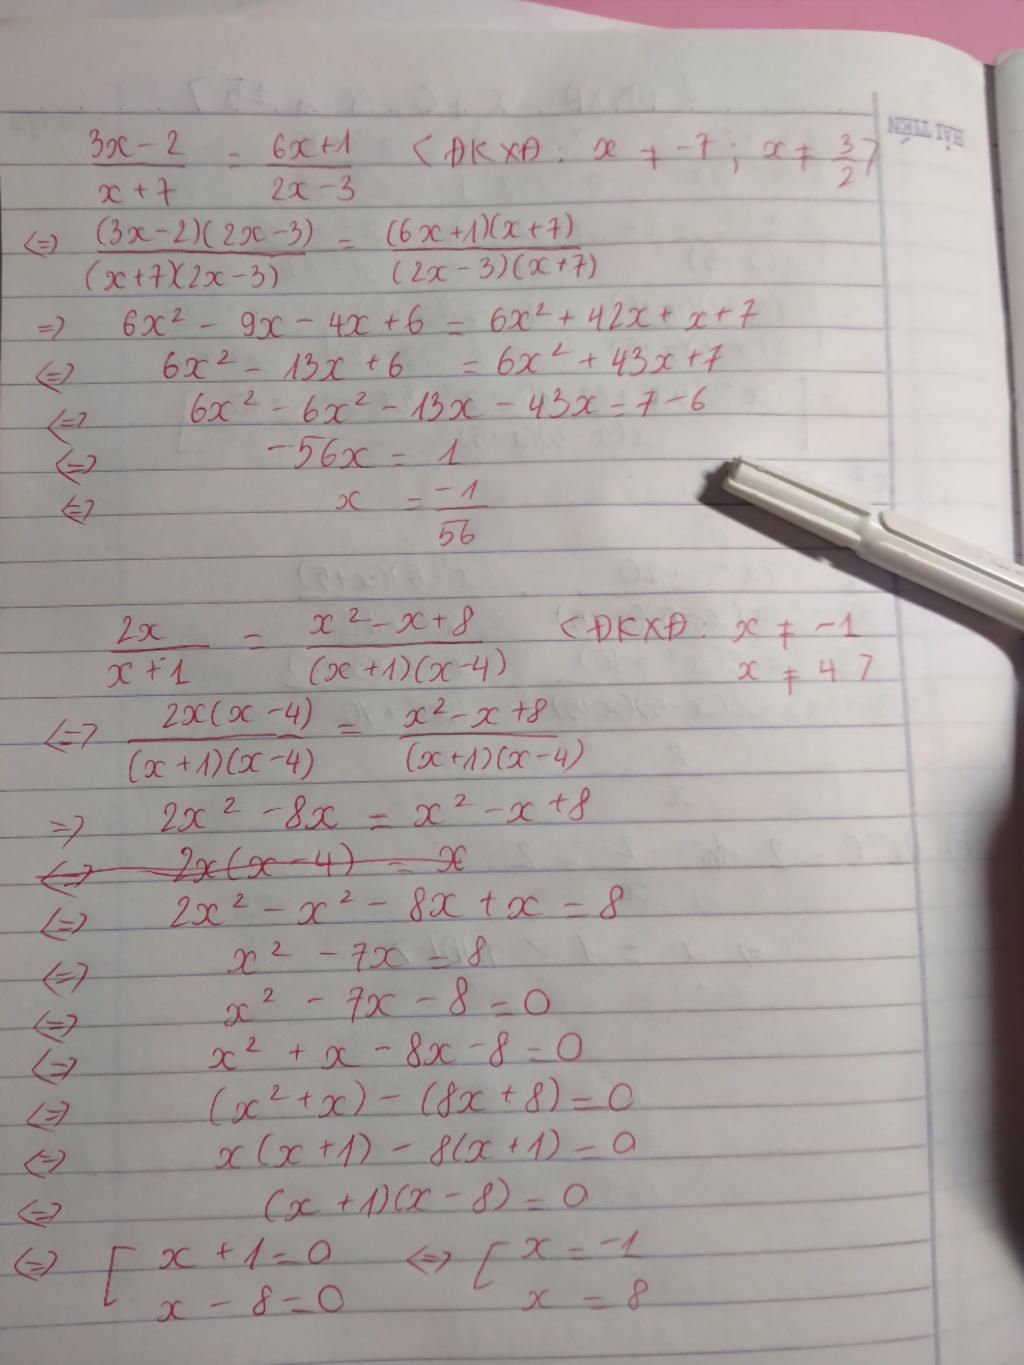 HẢI TIẾN
(3x-2)/(x+7) = (6x+1)/(2x-3) <ĐKXĐ: x ≠ -7; x ≠ 3/2>
<=> (3x-2)(2x-3)/(x+7)(2x-3) = (6x+1)(x+7)/(2x-3)(x+7)
=> 6x² - 9x - 4x + 6 = 6x² + 42x + x + 7
<=> 6x² - 13x + 6 = 6x² + 43x + 7
<=> 6x² - 6x² - 13x - 43x = 7 - 6
<=> -56x = 1
<=> x = -1/56
2x/(x+1) = (x² - x + 8)/(x+1)(x-4) <ĐKXĐ: x ≠ -1
x ≠ 4>
<=> 2x(x-4)/(x+1)(x-4) = (x² - x + 8)/(x+1)(x-4)
=> 2x² - 8x = x² - x + 8
<=> 2x(x-4) = x
<=> 2x² - x² - 8x + x = 8
<=> x² - 7x = 8
<=> x² - 7x - 8 = 0
<=> x² + x - 8x - 8 = 0
<=> (x² + x) - (8x + 8) = 0
<=> x(x+1) - 8(x+1) = 0
<=> (x+1)(x-8) = 0
<=> [ x + 1 = 0 <=> [ x = -1
x - 8 = 0 x = 8